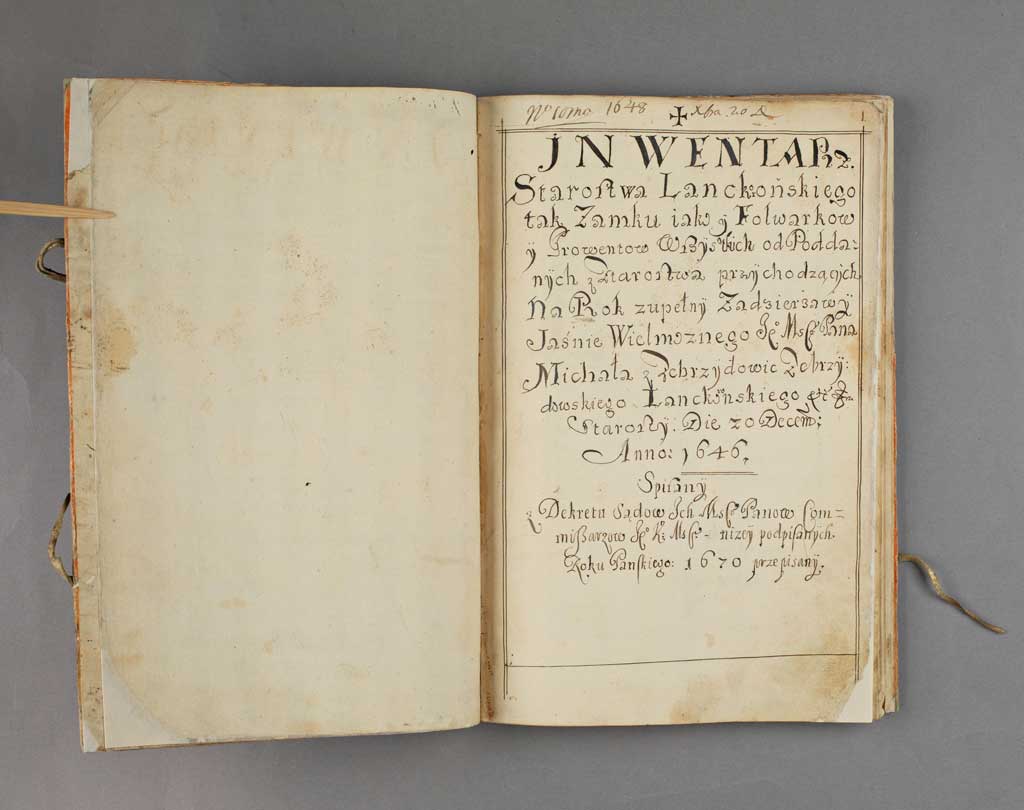 1648
JNWENTARz.
Starostwa Lanckorońskiego
tak Zamku iako y Folwarkow
y Prowentow Wszystkich od Podda-
nych z Starostwa przychodzących
Na Rok zupełny Zadzierzawy
Jaśnie Wielmoznego Je° Msc° Pana
Michała z Zebrzydowic Zebrzy:
dowskiego Lanckorońskiego etc
Starosty. Die 20 Decem:
Anno: 1646.
Spisany
z Dekretu Sądow Ich Msc° Panow Com-
missarzow Je° K: Msc° - nizey podpisanych.
Roku Pańskiego: 1670 przepisany.